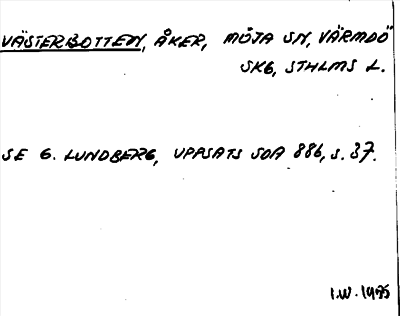 VÄSTERBOTTEN, ÅKER, MÖJA SN, VÄRMDÖ
SKG, STHLMS L.
SE G. LUNDBERG, UPPSATS SOA 886, S. 37.
I.W. 1995